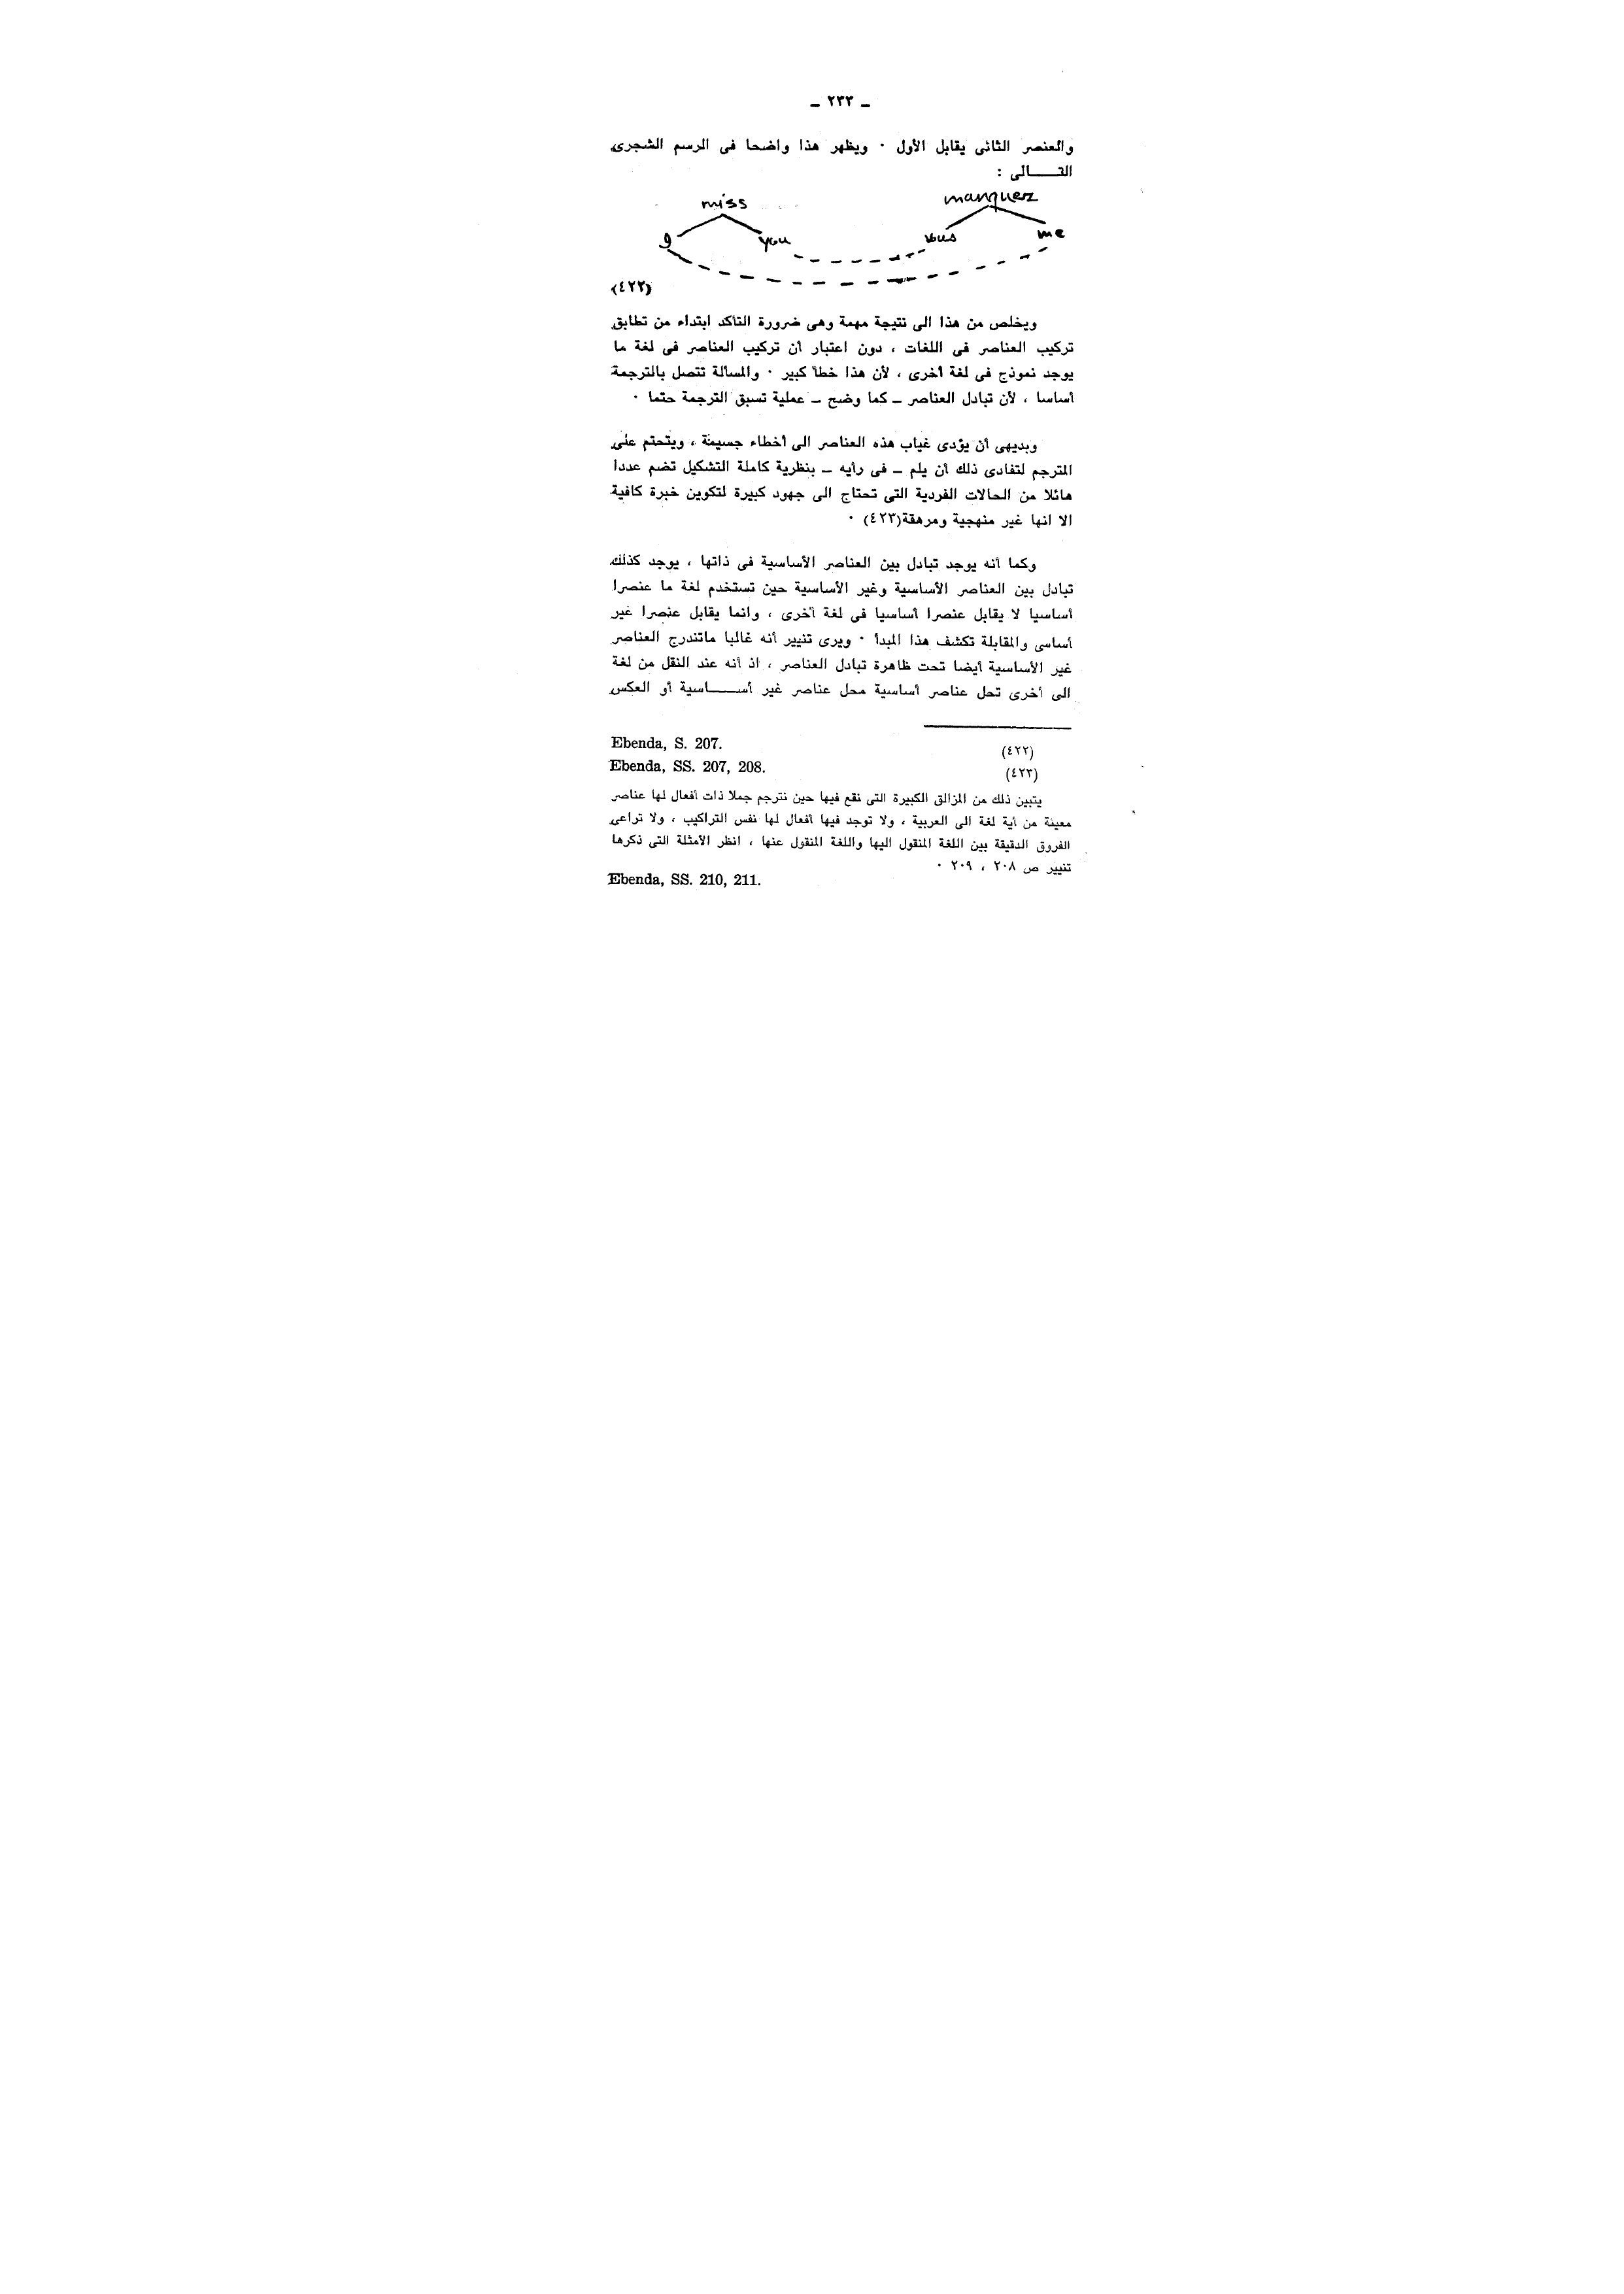 ـ ٢٣٣ ـ
والعنصر الثانى يقابل الأول ٠ ويظهر هذا واضحا فى الرسم الشجرى
التـــــالى :
miss manquez
I you vous me
(٤٢٢)
ويخلص من هذا الى نتيجة مهمة وهى ضرورة التأكد ابتداء من تطابق
تركيب العناصر فى اللغات ، دون اعتبار أن تركيب العناصر فى لغة ما
يوجد نموذج فى لغة أخرى ، لأن هذا خطأ كبير ٠ والمسألة تتصل بالترجمة
أساسا ، لأن تبادل العناصر ـ كما وضح ـ عملية تسبق الترجمة حتما ٠
وبديهى أن يؤدى غياب هذه العناصر الى أخطاء جسيمة ، ويتحتم على
المترجم لتفادى ذلك أن يلم ـ فى رأيه ـ بنظرية كاملة التشكيل تضم عددا
هائلا من الحالات الفردية التى تحتاج الى جهود كبيرة لتكوين خبرة كافية
الا انها غير منهجية ومرهقة(٤٢٣) ٠
وكما أنه يوجد تبادل بين العناصر الأساسية فى ذاتها ، يوجد كذلك
تبادل بين العناصر الأساسية وغير الأساسية حين تستخدم لغة ما عنصرا
أساسيا لا يقابل عنصرا أساسيا فى لغة أخرى ، وانما يقابل عنصرا غير
أساسى والمقابلة تكشف هذا المبدأ ٠ ويرى تنيير أنه غالبا ماتندرج العناصر
غير الأساسية أيضا تحت ظاهرة تبادل العناصر ، اذ أنه عند النقل من لغة
الى أخرى تحل عناصر أساسية محل عناصر غير أســــــاسية أو العكس
(٤٢٢) Ebenda, S. 207.
(٤٢٣) Ebenda, SS. 207, 208.
يتبين ذلك من المزالق الكبيرة التى نقع فيها حين نترجم جملا ذات أفعال لها عناصر
معينة من أية لغة الى العربية ، ولا توجد فيها أفعال لها نفس التراكيب ، ولا تراعى
الفروق الدقيقة بين اللغة المنقول اليها واللغة المنقول عنها ، انظر الأمثلة التى ذكرها
تنيير ص ٢٠٨ ، ٢٠٩ ٠
Ebenda, SS. 210, 211.